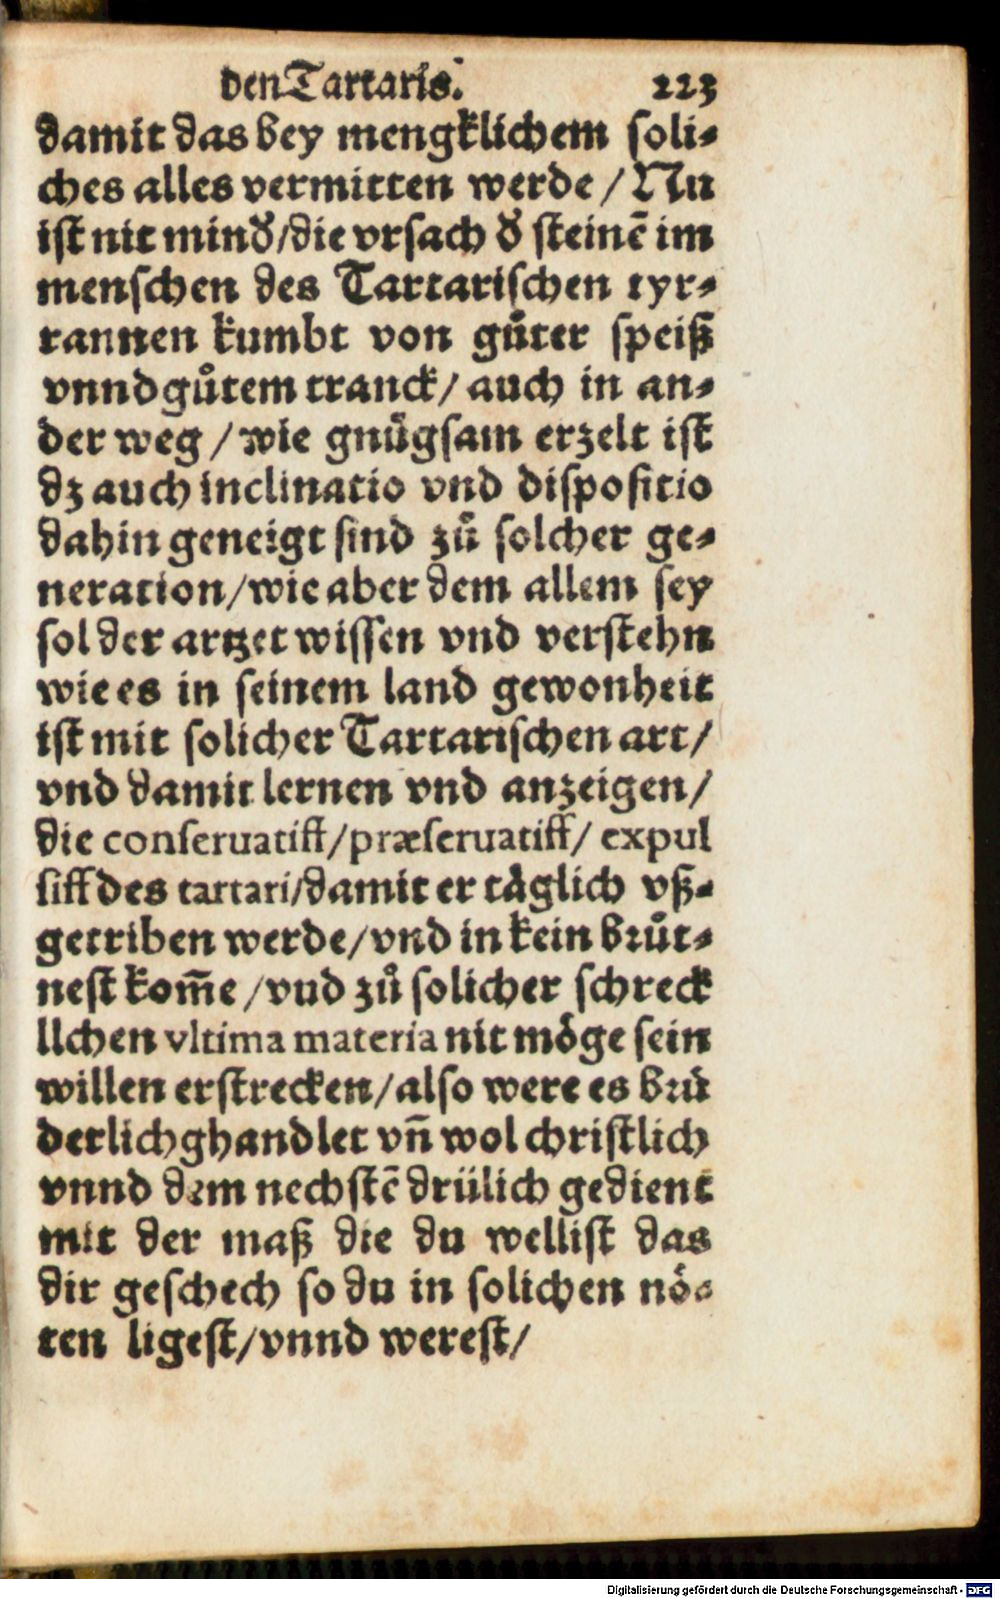 den Tartaris. 223
damit das bey mengklichem soli⸗
ches alles vermitten werde / Nu
ist nit mind̕ / die vrsach d̕ steinē im
menschen des Tartarischen tyr⸗
rannen kumbt von gůter speiß
vnnd gůtem tranck / auch in an⸗
der weg / wie gnůgsam erzelt ist
dz auch inclinatio vnd dispositio
dahin geneigt sind zů solcher ge⸗
neration / wie aber dem allem sey
sol der artzet wissen vnd verstehn
wie es in seinem land gewonheit
ist mit solicher Tartarischen art /
vnd damit lernen vnd anzeigen /
die conseruatiff / præseruatiff / expul
siff des tartari / damit er täglich vß⸗
getriben werde / vnd in kein brůt⸗
nest kom̄e / vud zů solicher schreck
llchen vltima materia nit möge sein
willen erstrecken / also were es brů
derlich ghandlet vn̄ wol christlich
vnnd dem nechstē drülich gedient
mit der maß die du wellist das
dir geschech so du in solichen nö⸗
ten ligest / vnnd werest /
Digitalisierung gefördert durch die Deutsche Forschungsgemeinschaft - DFG